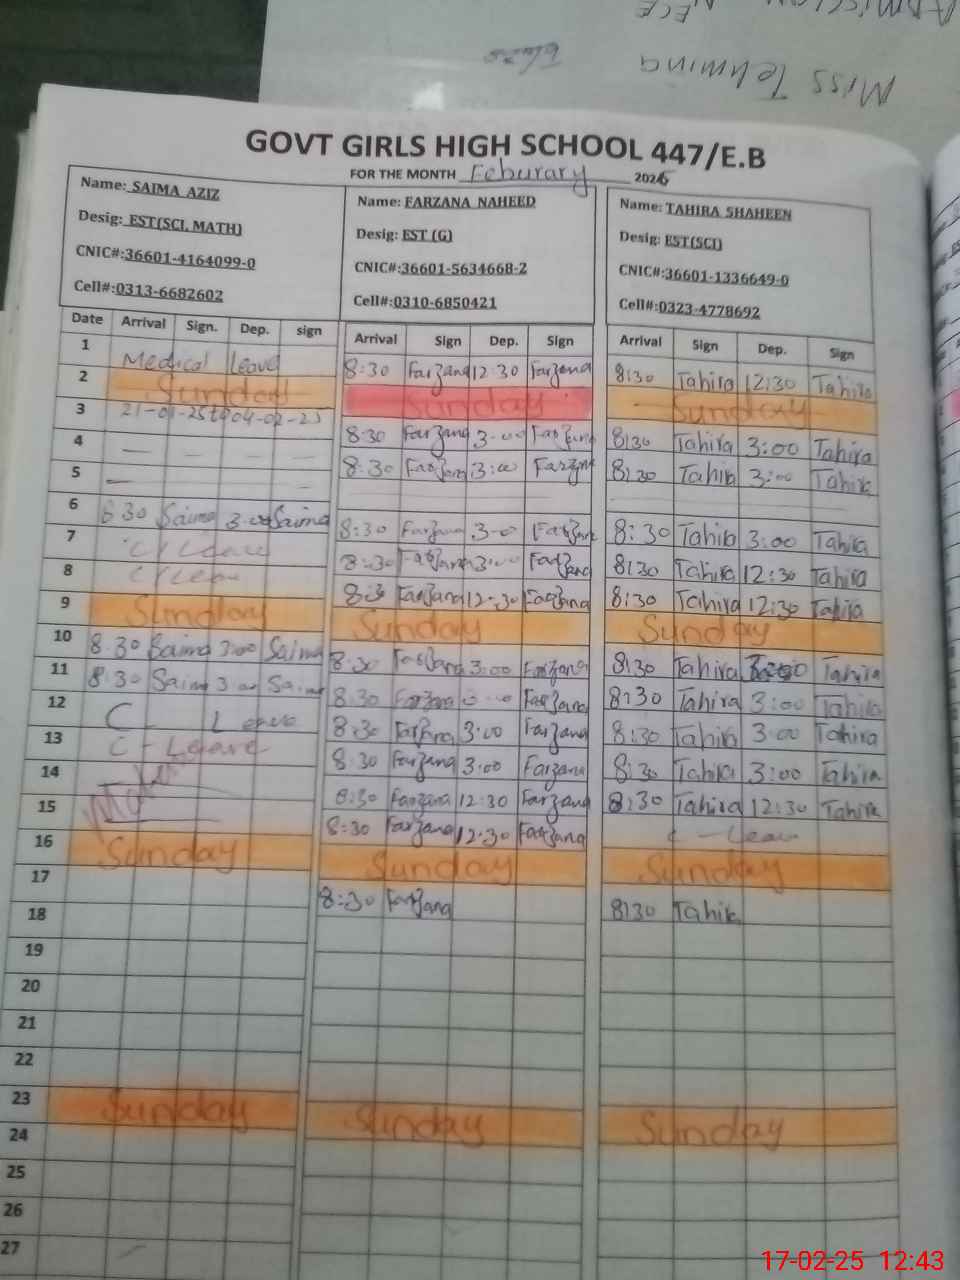 Miss Tehmina
GOVT GIRLS HIGH SCHOOL 447/E.B
FOR THE MONTH Feburary 2025
Name: SAIMA AZIZ
Desig: EST(SCI, MATH)
CNIC#:36601-4164099-0
Cell#:0313-6682602
Name: FARZANA NAHEED
Desig: EST (G)
CNIC#:36601-5634668-2
Cell#:0310-6850421
Name: TAHIRA SHAHEEN
Desig: EST(SCI)
CNIC#:36601-1336649-0
Cell#:0323-4778692
Date Arrival Sign. Dep. sign Arrival Sign Dep. Sign Arrival Sign Dep. Sign
1 Medical Leave 8:30 Farzana 12:30 Farzana 8:30 Tahira 12:30 Tahira
2 Sunday Sunday Sunday
3 21-01-25 to 04-02-25 8:30 Farzana 3:00 Farzana 8:30 Tahira 3:00 Tahira
4 8:30 Farzana 3:00 Farzna 8:30 Tahira 3:00 Tahira
5
6 8:30 Saima 3:00 Saima 8:30 Farzana 3:00 Farzana 8:30 Tahira 3:00 Tahira
7 C/Leave 8:30 Farzana 3:00 Farzana 8:30 Tahira 12:30 Tahira
8 C/Leave 8:30 Farzana 12:30 Farzana 8:30 Tahira 12:30 Tahira
9 Sunday Sunday Sunday
10 8:30 Saima 3:00 Saima 8:30 Farzana 3:00 Farzana 8:30 Tahira 3:00 Tahira
11 8:30 Saima 3:00 Saima 8:30 Farzana 3:00 Farzana 8:30 Tahira 3:00 Tahira
12 C Leave 8:30 Farzana 3:00 Farzana 8:30 Tahira 3:00 Tahira
13 C-Leave 8:30 Farzana 3:00 Farzana 8:30 Tahira 3:00 Tahira
14 8:30 Farzana 12:30 Farzana 8:30 Tahira 12:30 Tahira
15 8:30 Farzana 12:30 Farzana C-Leave
16 Sunday Sunday Sunday
17 8:30 Farzana 8:30 Tahira
18
19
20
21
22
23 Sunday Sunday Sunday
24
25
26
27
17-02-25 12:43